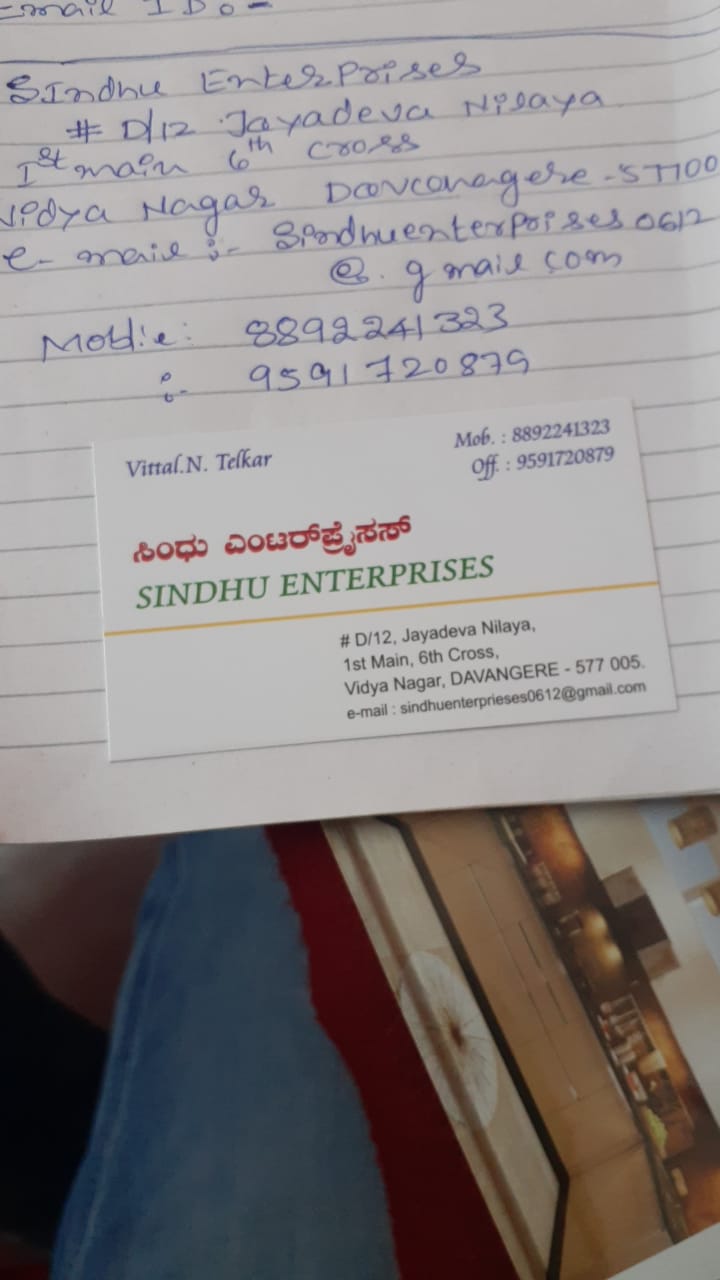 Email ID:-
SIndhu Enterprises
# D/12 Jayadeva Nilaya
Ist main 6th cross
Vidya Nagar Davanagere - 57700
e- mail :- Sindhuenterprises0612
@. gmail com
Mobile: 8892241323
:- 9591720879
Vittal.N. Telkar
Mob. : 8892241323
Off. : 9591720879
ಸಿಂಧು ಎಂಟರ್‌ಪ್ರೈಸಸ್
SINDHU ENTERPRISES
# D/12, Jayadeva Nilaya,
1st Main, 6th Cross,
Vidya Nagar, DAVANGERE - 577 005.
e-mail : sindhuenterprieses0612@gmail.com